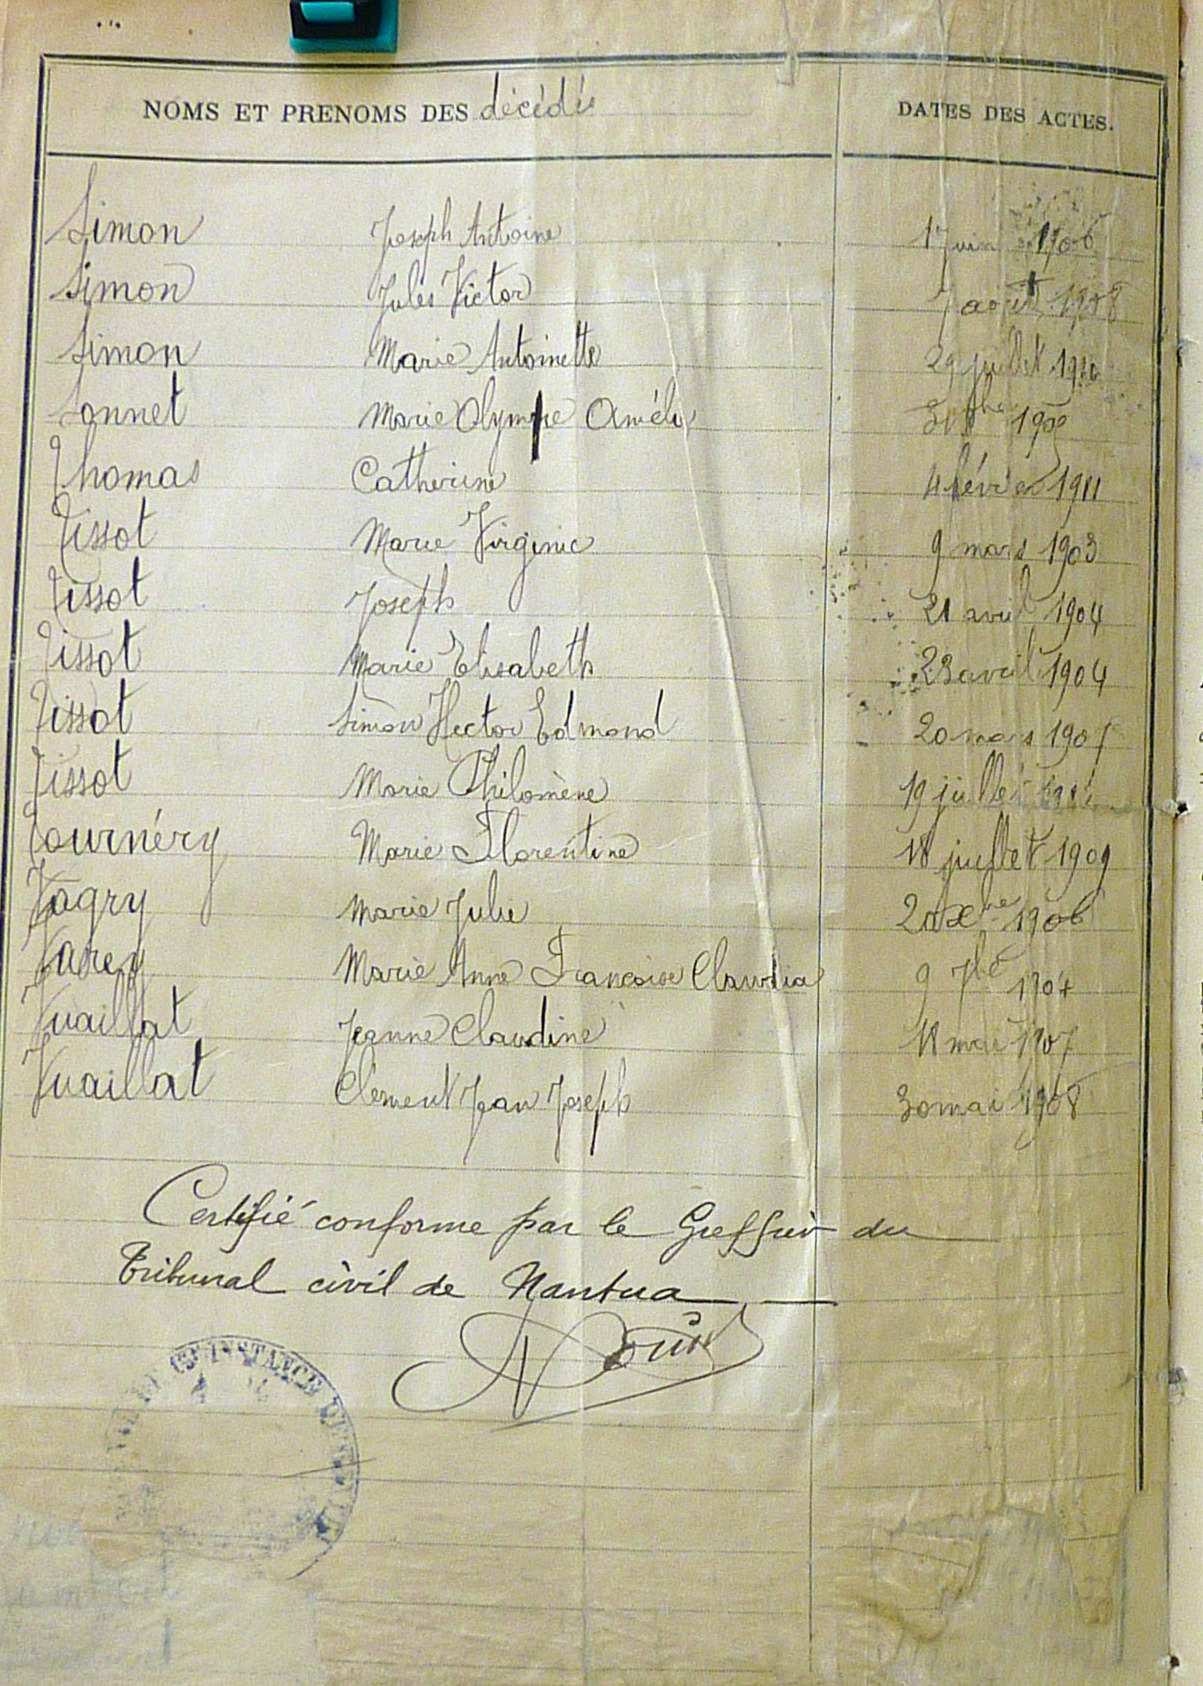 NOMS ET PRENOMS DES décédés DATES DES ACTES.
Simon Joseph Antoine 1 Juin 1906
Simon Jules Victor 7 août 1908
Simon Marie Antoinette 29 juillet 1910
Sonnet Marie Olympe Amélie
Thomas Catherine 4 février 1911
Tissot Marie Virginie 9 mars 1903
Tissot Joseph 21 avril 1904
Tissot Marie Elisabeth 23 avril 1904
Tissot Simon Hector Edmond 20 mars 1907
Tissot Marie Philomène 19 juillet
Tournéry Marie Florentine 18 juillet 1909
Vagry Marie Julie 20 Xbre 1906
Varey Marie Anne Françoise Claudia 9 7bre 1904
Vuaillat Jeanne Claudine 18 mai 1907
Vuaillat Clément Jean Joseph 30 mai 1908
Certifié conforme par le Greffier du
Tribunal civil de Nantua
INSTANCE DE